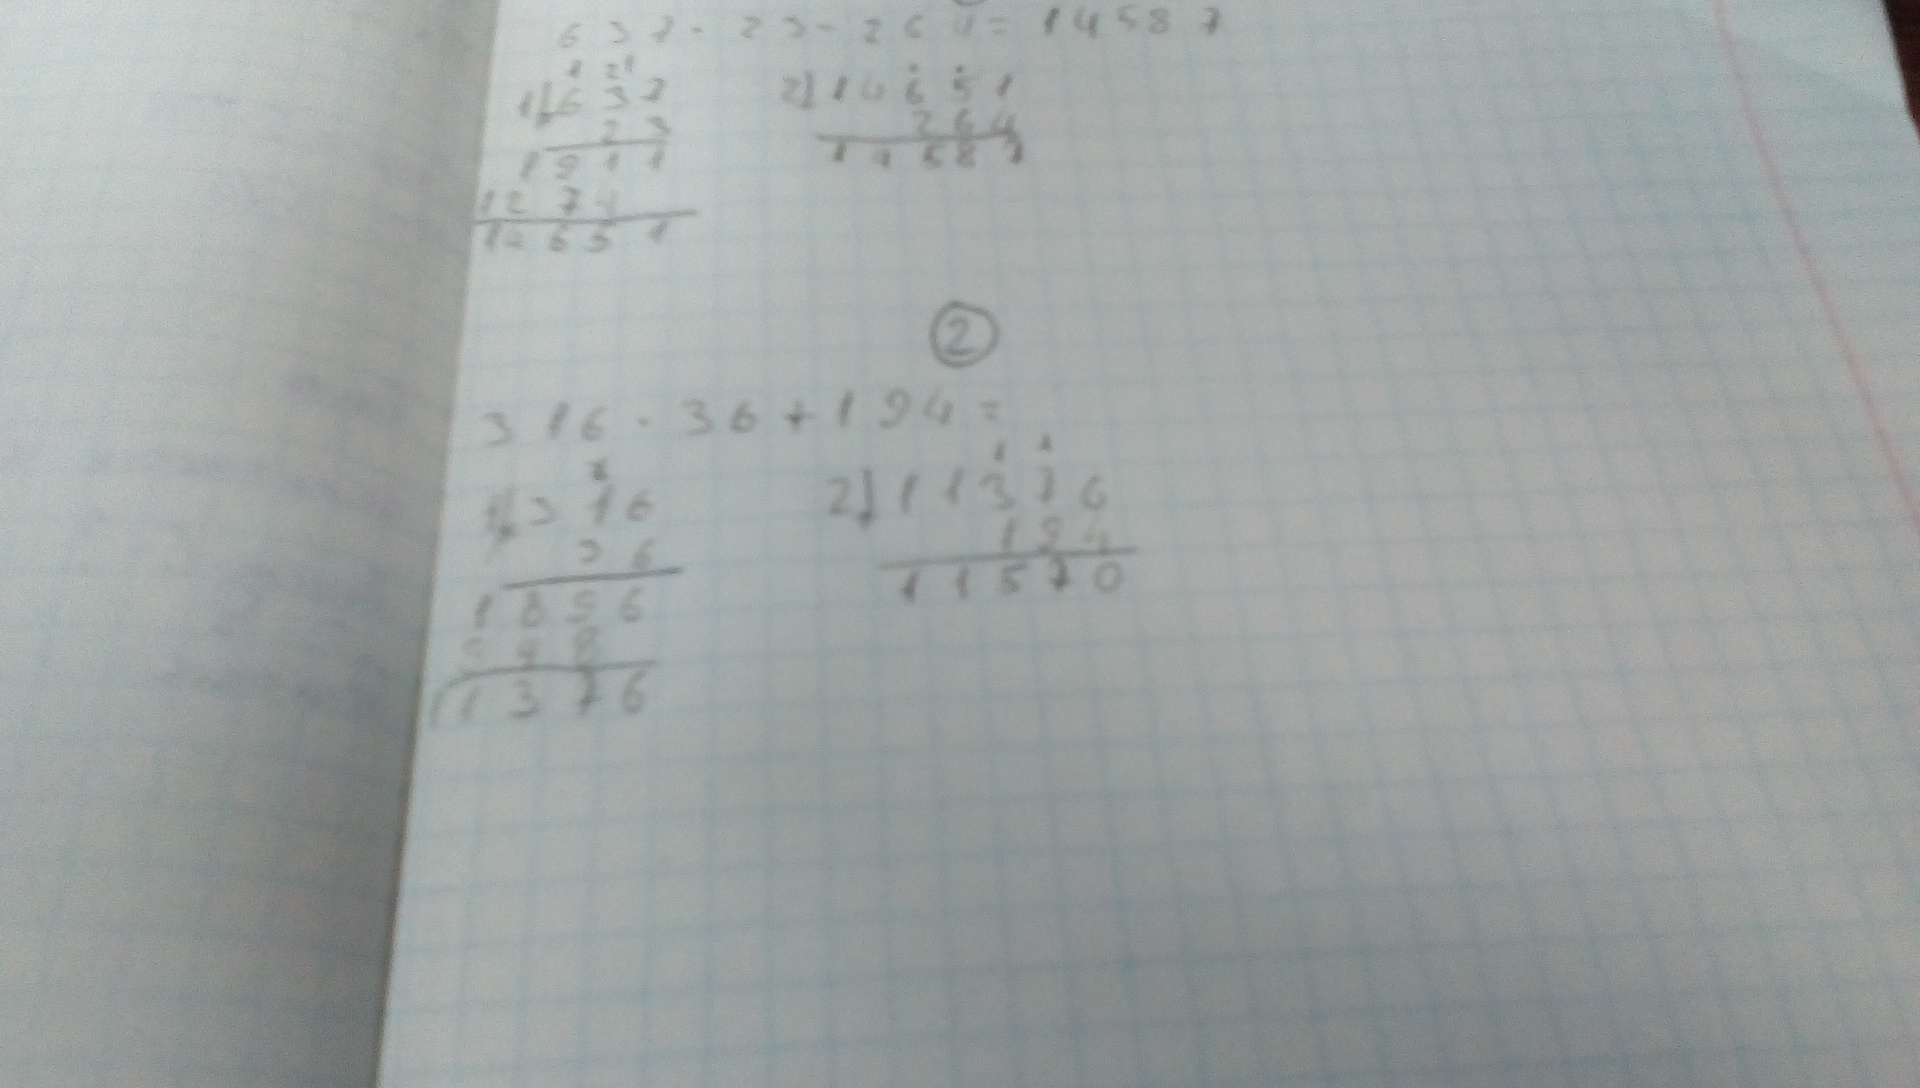 637 · 23 - 264 = 14587
1 21
1) 637
23
1911
1274
12651
2) 14651
264
14587
2
316 · 36 + 194 =
3
1) 316
36
1896
948
11376
1 1
2) 11376
194
11570